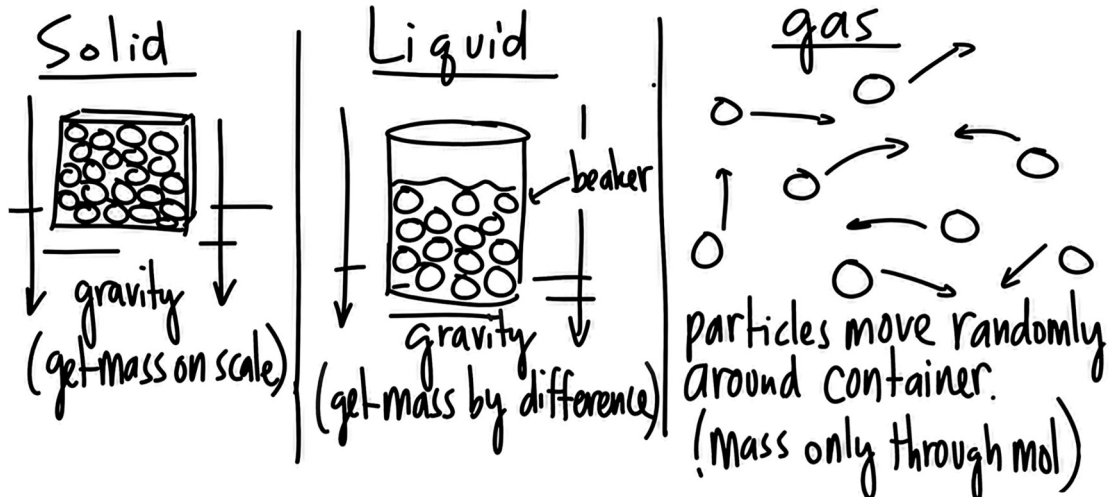 Solid
gravity
(get mass on scale)
Liquid
beaker
gravity
(get mass by difference)
gas
particles move randomly
around container.
(mass only through mol)